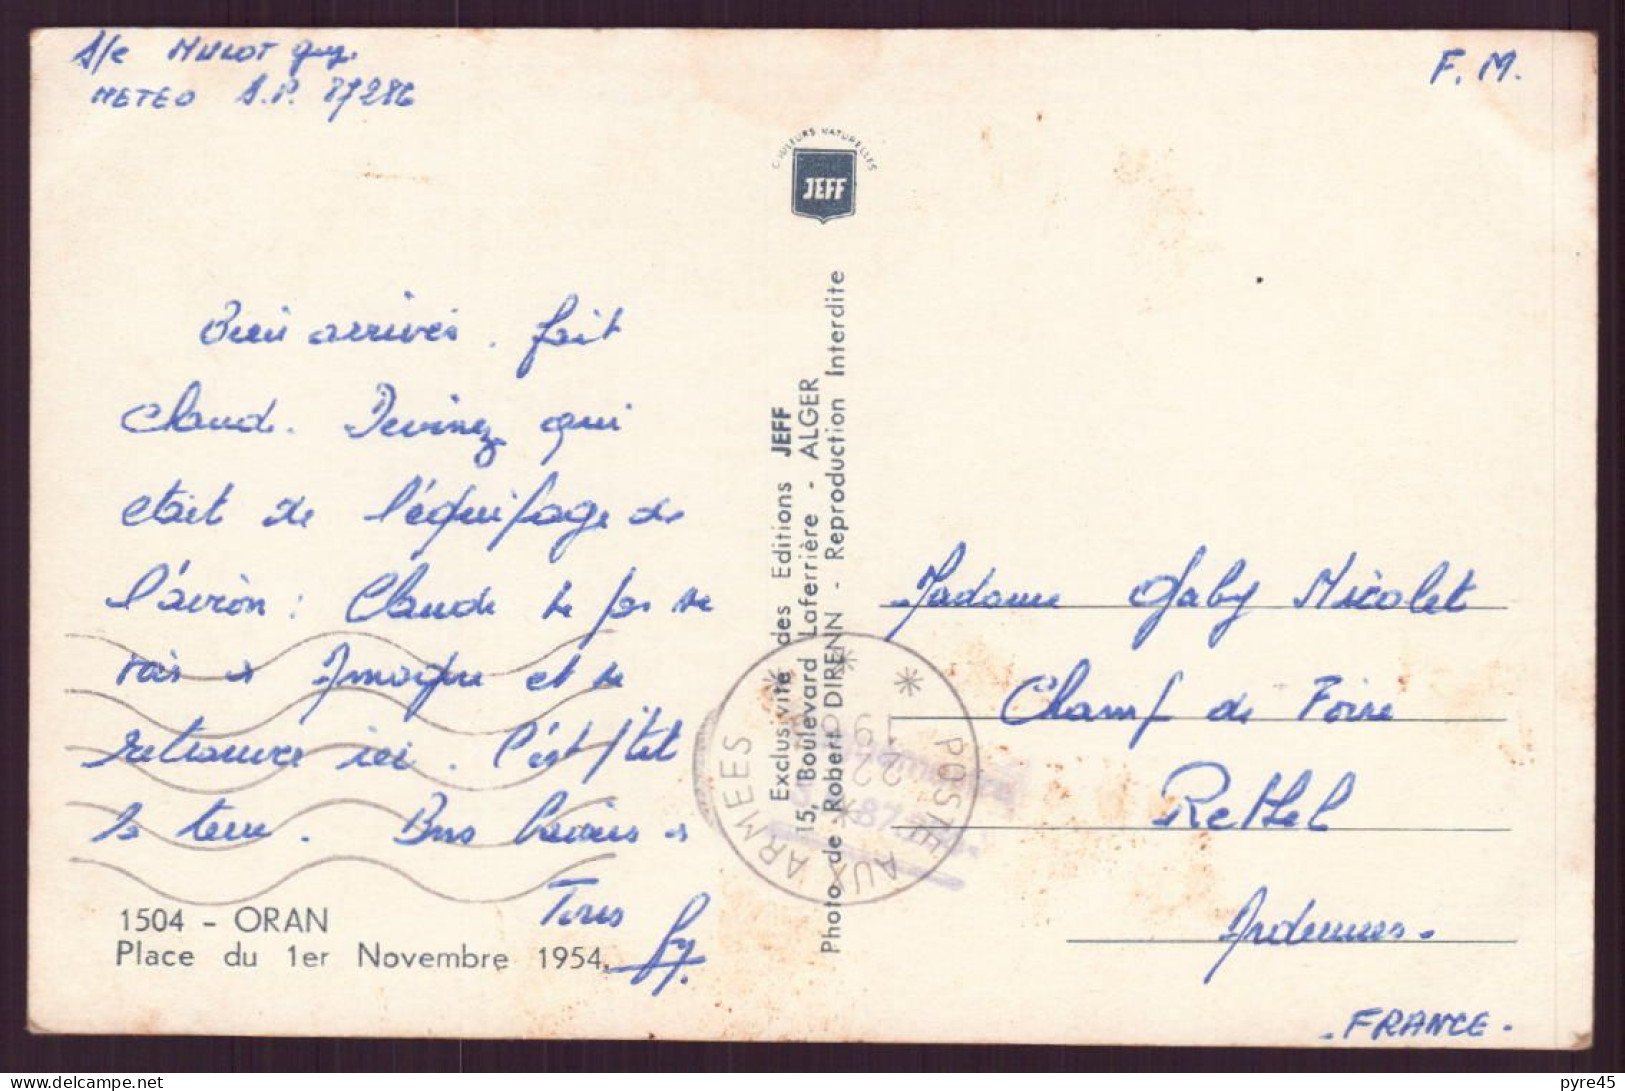 S/c MULOT Guy.
METEO S.P. 87286
F. M.
COULEURS NATURELLES
JEFF
Bien arrivés. fait
Chaud. Devinez qui
etait de l'équipage de
l'avion : Claude
et se
retrouver ici. C'est
la terre. Bons baisers a
Tous
Guy.
1504 - ORAN
Place du 1er Novembre 1954.
Exclusivité des Editions JEFF
15, Boulevard Laferrière - ALGER
Photo de Robert DIRENN - Reproduction Interdite
POSTE AUX ARMEES
Madame Gaby Nicolet
Champ de Foire
Rethel
Ardennes.
. FRANCE.
delcampe.net
pyre45